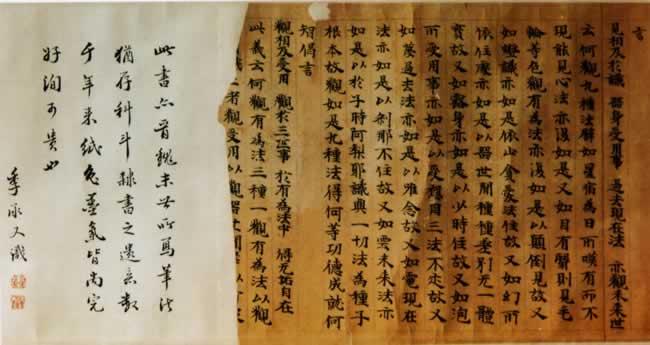 言
見相及於識　器身受用事　過去現在法　亦觀未來世
云何觀九種法譬如星宿為日所映有而不
現能見心法亦復如是又如目有翳則見毛
輪等色觀有為法亦復如是以顛倒見故又
如燈識亦如是依止貪愛法住故又如幻所
依住處亦如是以器世間種種差別无一體
實故又如露身亦如是以少時住故又如泡
所受用事亦如是以受想因三法不定故又
如夢過去法亦如是以唯念故又如電現在
法亦如是以剎那不住故又如雲未來法亦
如是以於子時阿梨耶識與一切法為種子
根本故觀如是九種法得何等功德成就何
智偈言
觀相及受用　觀於三世事　於有為法中　得无垢自在
此義云何觀有為法三種一觀有為法以觀
二者觀受用以觀器世間
此書亦晉魏末世所寫筆法
猶存科斗隸書之遺意數
千年來紙色墨氣皆尚完
好洵可貴也
季承又識